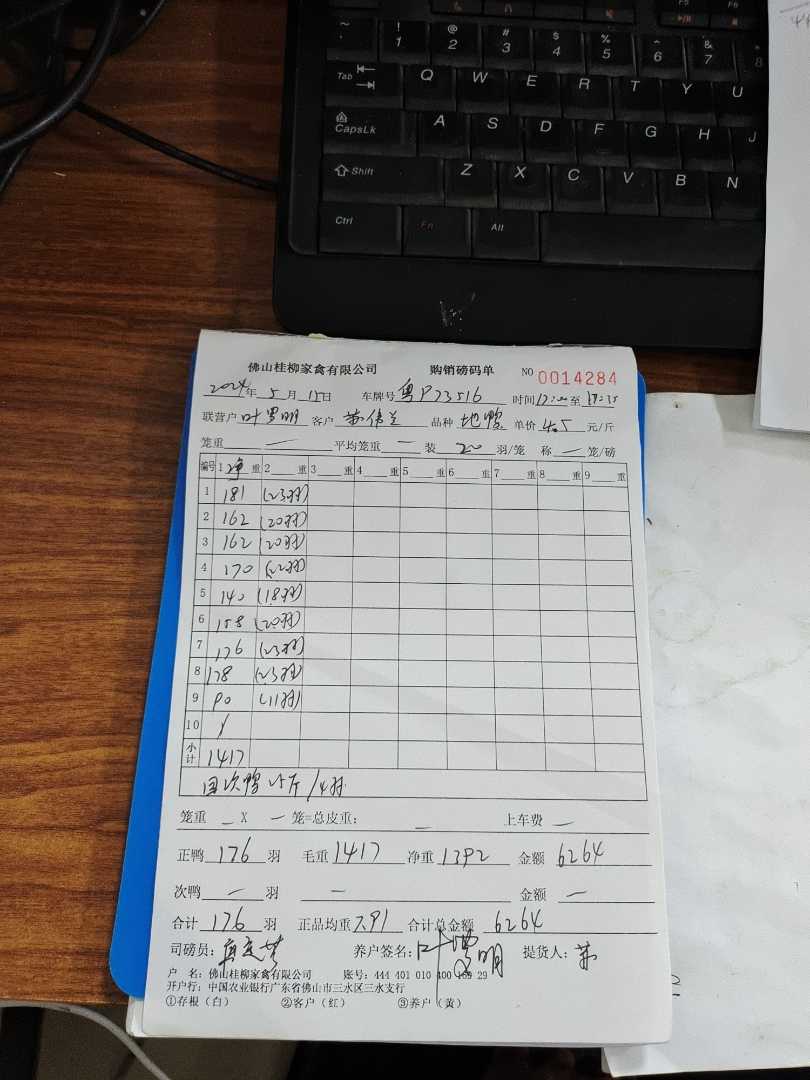 ~ ! @ # $ % ^ &
1 2 3 4 5 6 7 8
Tab Q W E R T Y U
CapsLk A S D F G H J
Shift Z X C V B N
Ctrl Fn Alt
佛山桂柳家禽有限公司 购销磅码单 NO 0014284
2024年5月15日 车牌号 粤P73516 时间 至
联营户 叶罗明 客户 品种 地鸭 单价 4.5 元/斤
笼重 一 平均笼重 一 装 20 羽/笼 称 一 笼/磅
编号 1 净重 2 重 3 重 4 重 5 重 6 重 7 重 8 重 9 重
1 181 (23羽)
2 162 (20羽)
3 162 (20羽)
4 170 (22羽)
5 140 (18羽)
6 158 (20羽)
7 176 (23羽)
8 178 (23羽)
9 90 (11羽)
10 /
小计 1417
回次鸭 25斤/4羽
笼重 一 X 一 笼=总皮重: 一 上车费 一
正鸭 176 羽 毛重 1417 净重 1392 金额 6264
次鸭 一 羽 一 金额 一
合计 176 羽 正品均重 7.91 合计总金额 6264
司磅员: 养户签名: 叶罗明 提货人:
户 名: 佛山桂柳家禽有限公司 账号: 444 401 010 400 29
开户行: 中国农业银行广东省佛山市三水区三水支行
①存根(白) ②客户(红) ③养户(黄)